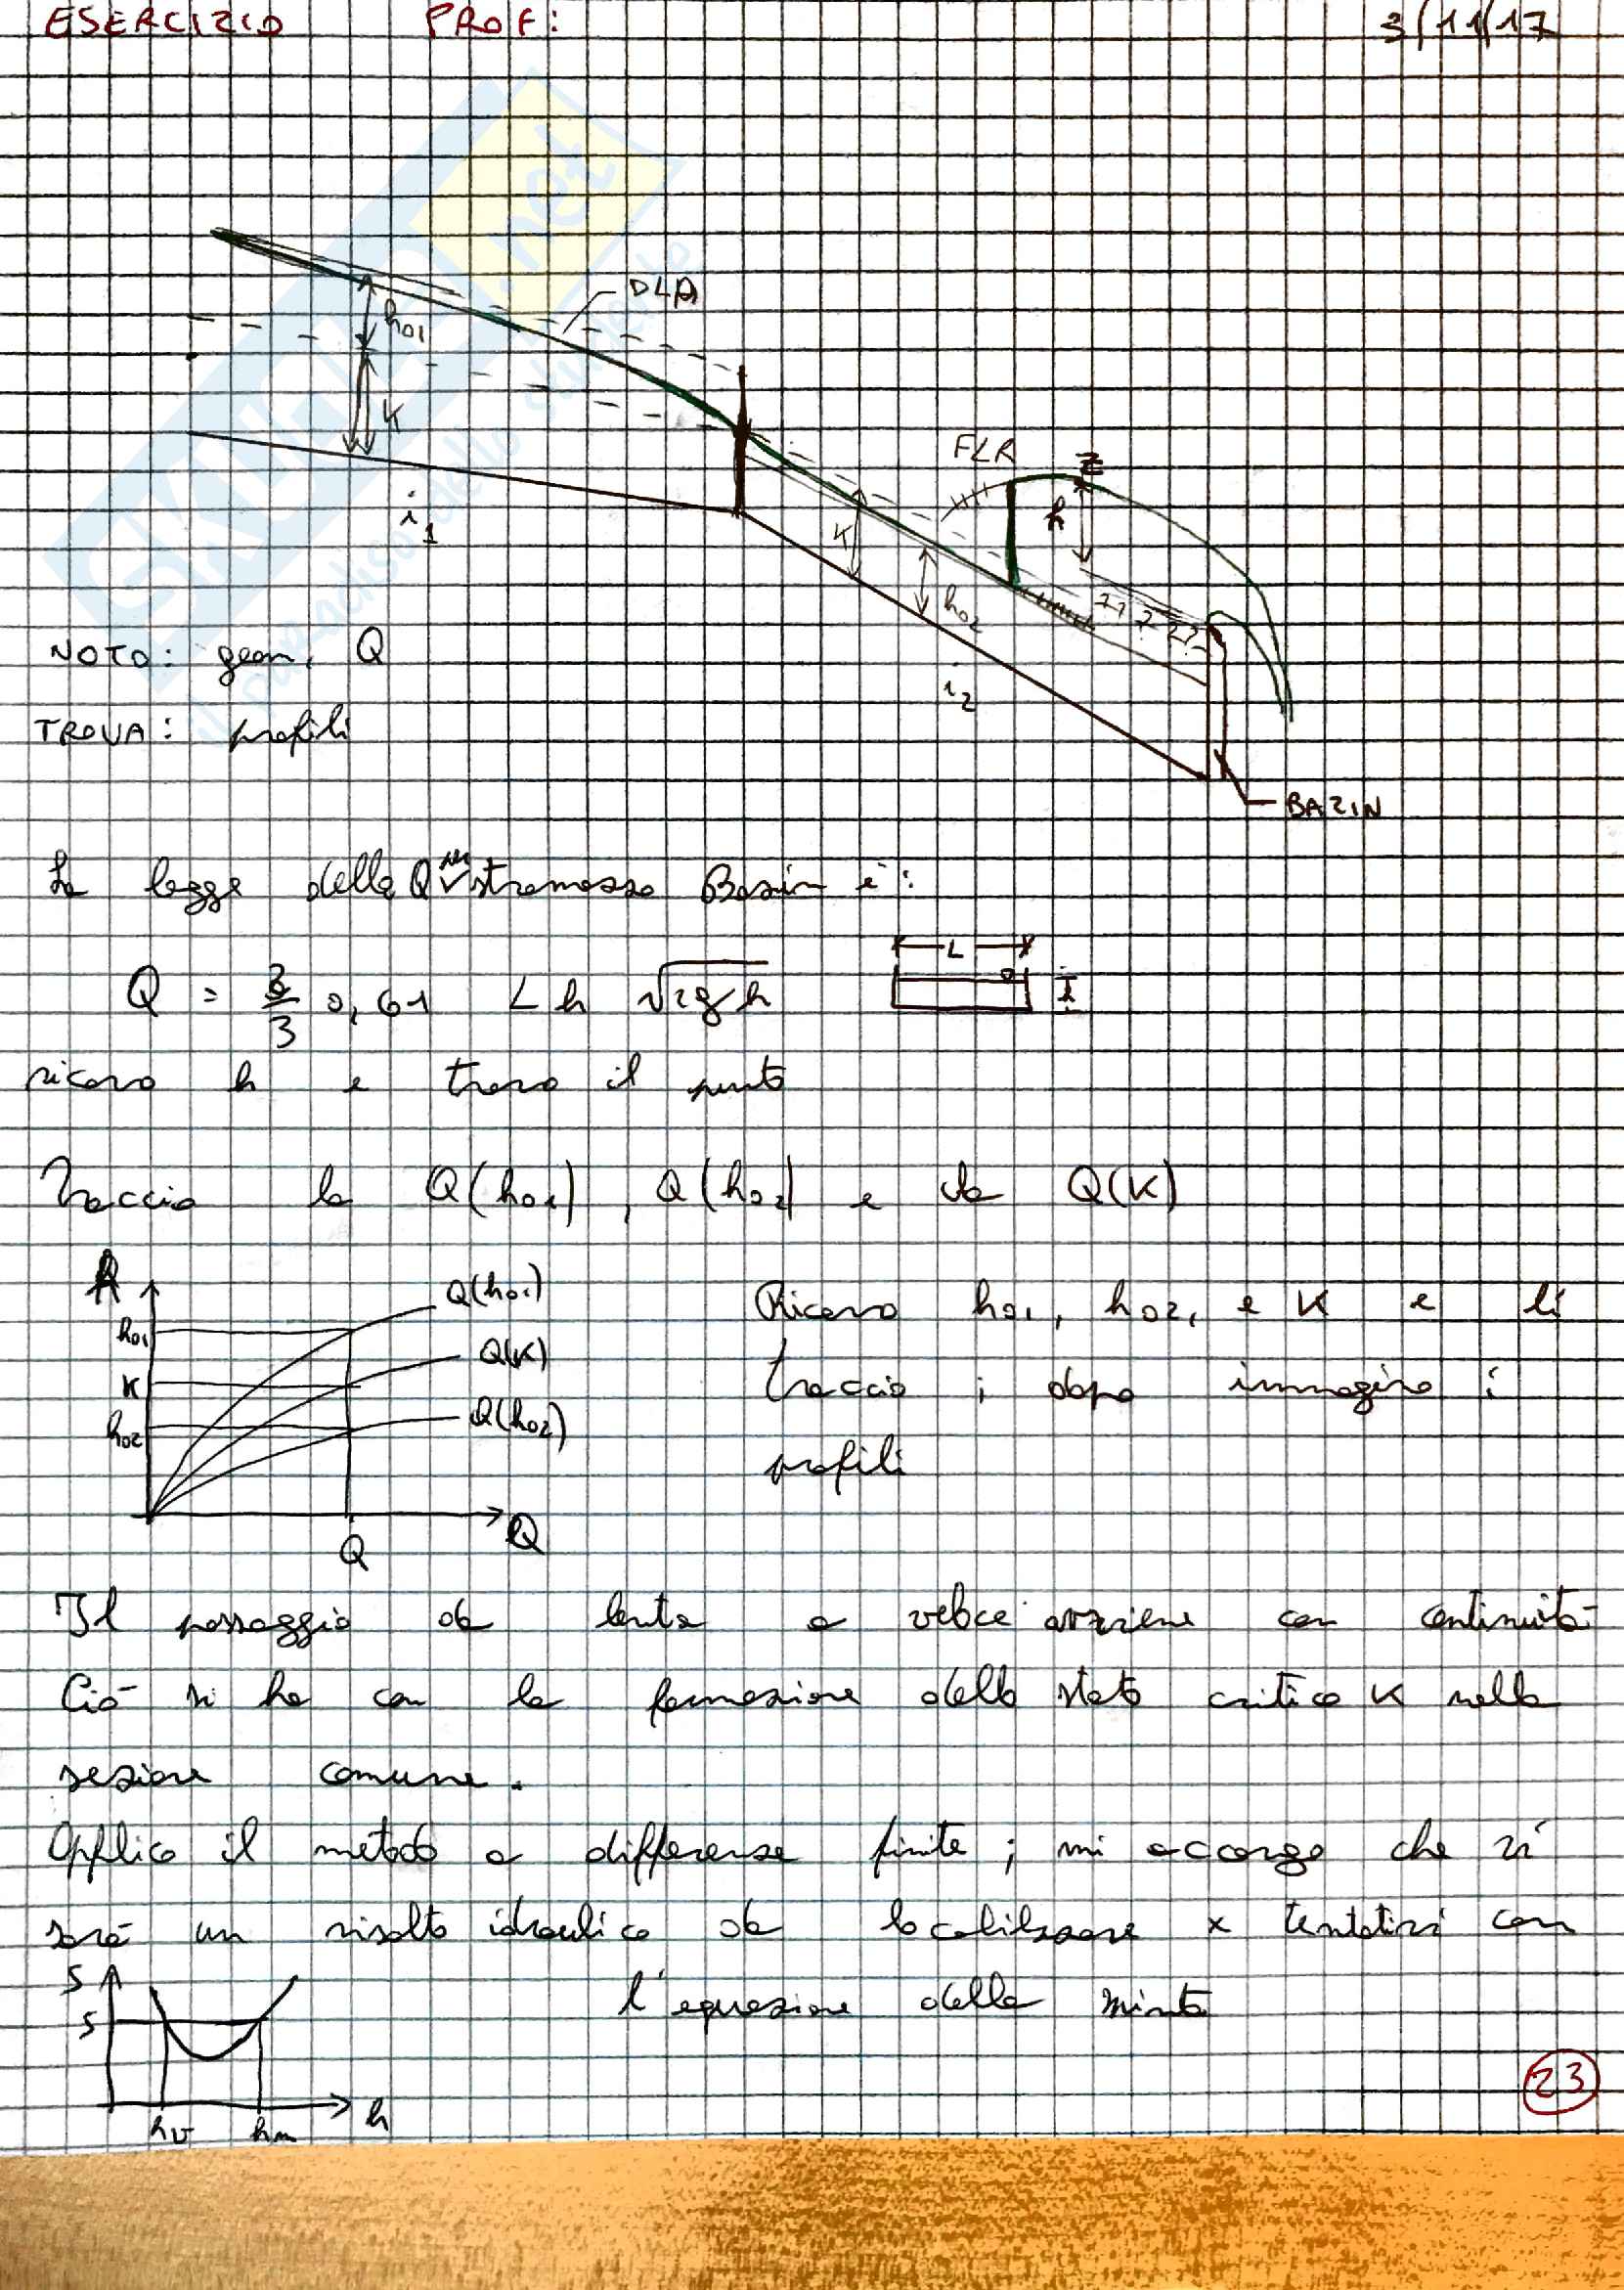 ESERCIZIO PROF: 3/11/17
DLA
h01
K
FLR
Z
h
i1
K
h02
i2
NOTO: geom, Q
TROVA: profili
BAZIN
La legge della Q per stramazzo Bazin è:
Q = 2/3 0,61 L h √2gh
L
h
ricavo h e trovo il punto
Traccio la Q(h01), Q(h02) e la Q(K)
h01
K
h02
Q(h01)
Q(K)
Q(h02)
Q
Q
Ricavo h01, h02, e K e li
traccio; dopo immagino i
profili
Il passaggio da lenta a veloce avviene con continuità
Ciò si ha con la formazione dello stato critico K nella
sezione comune.
Applico il metodo a differenze finite; mi accorgo che vi
sarà un risalto idraulico da localizzare x tentativi con
l'equazione della spinta
S
S
hv hm h
23
SKUOLA.net
il paradiso dello studente